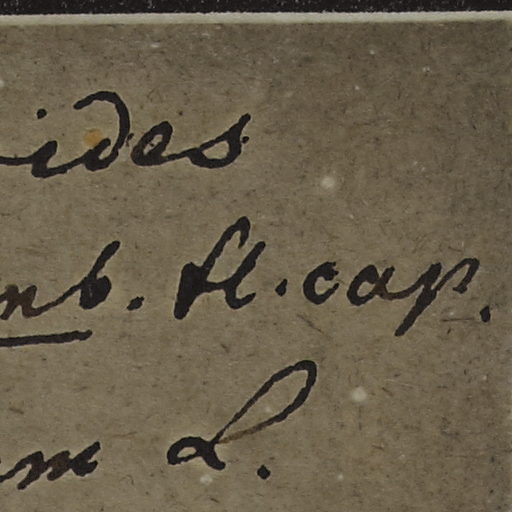 ides
mb. fl. cap.
m L.